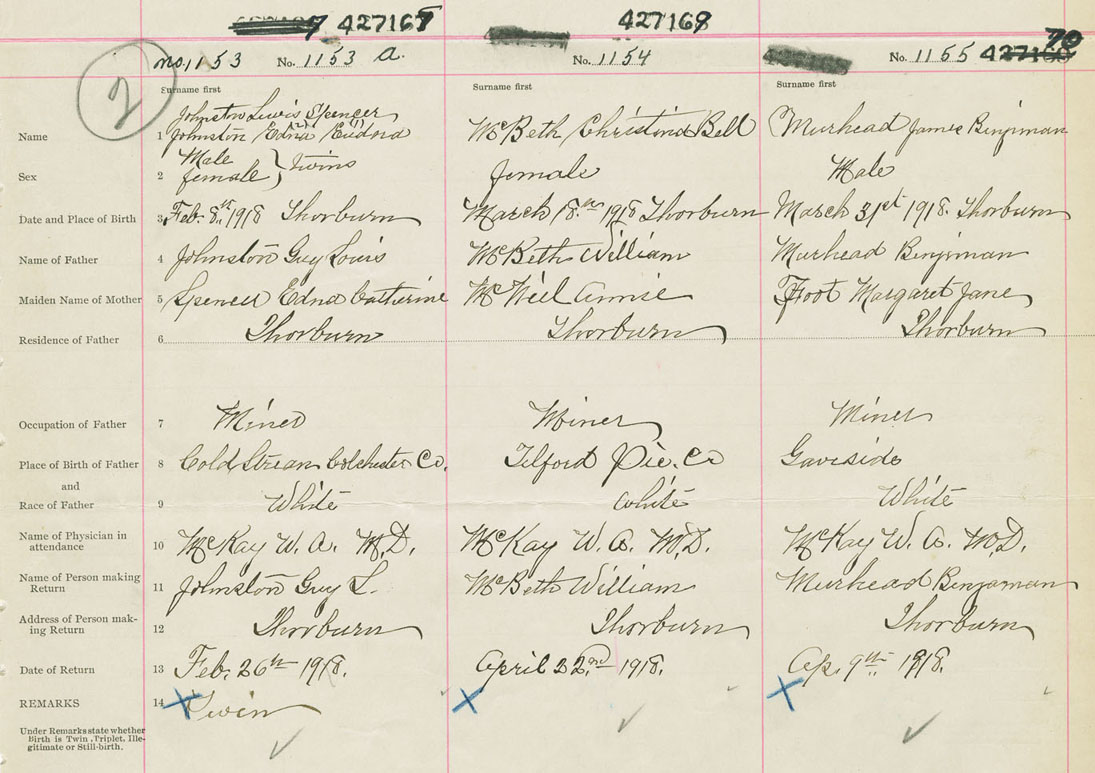 427169
427169
70
2
no. 1153 No. 1153 a. No. 1154 No. 1155
Surname first Surname first Surname first
Johnston Lewis Spencer
Name 1 Johnston Edna Eudora McBeth Christina Bell Muirhead James Benjiman
Male
Sex 2 female } Twins female Male
Date and Place of Birth 3 Feb. 8th 1918 Thorburn March 18th 1918 Thorburn March 31st 1918. Thorburn
Name of Father 4 Johnston Guy Louis McBeth William Muirhead Benjiman
Maiden Name of Mother 5 Spencer Edna Catherine McNeil Annie Foot Margaret Jane
Residence of Father 6 Thorburn Thorburn Thorburn
Occupation of Father 7 Miner Miner Miner
Place of Birth of Father 8 Cold Stream Colchester Co. Telford Pic. Co
and
Race of Father 9 White White White
Name of Physician in
attendance 10 McKay W. A. M.D. McKay W. A. M.D. McKay W. A. M.D.
Name of Person making
Return 11 Johnston Guy L. McBeth William Muirhead Benjaman
Address of Person mak-
ing Return 12 Thorburn Thorburn Thorburn
Date of Return 13 Feb. 26th 1918. April 22nd 1918. Ap. 9th 1918.
REMARKS 14 Twin
Under Remarks state whether
Birth is Twin, Triplet, Ille-
gitimate or Still-birth.